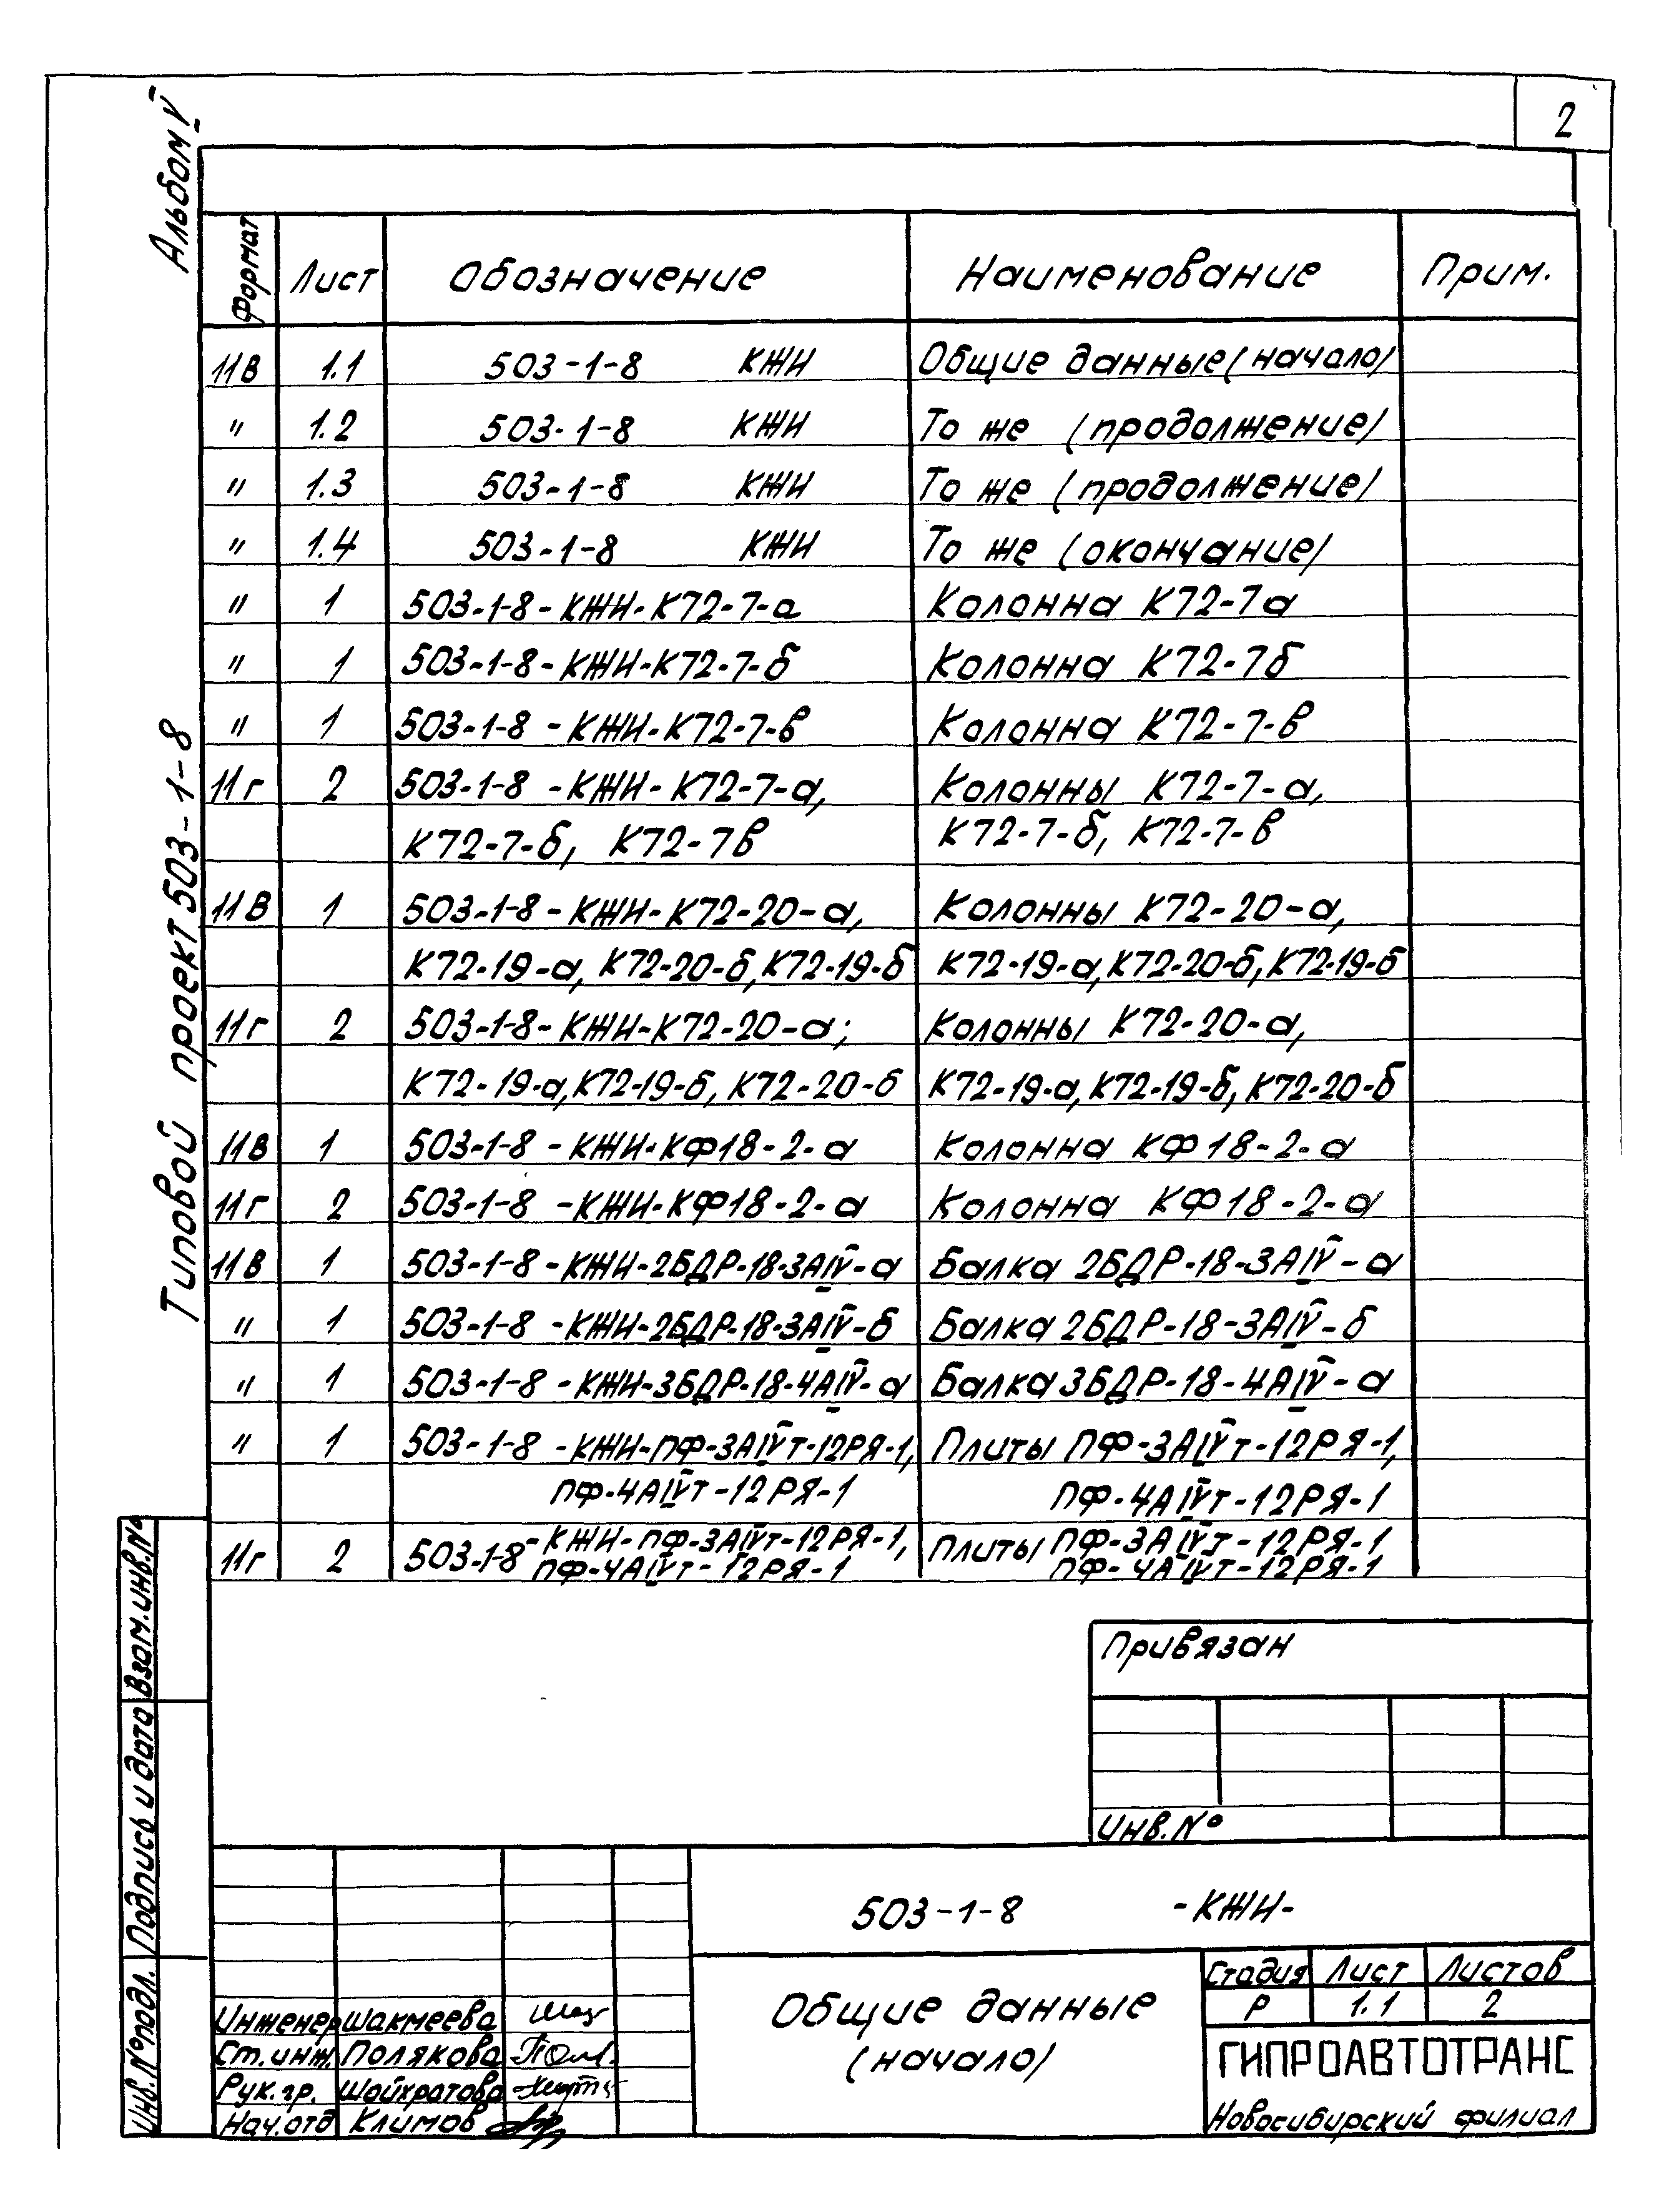 2
Альбом V
Типовой проект 503-1-8
Формат Лист Обозначение Наименование Прим.
11В 1.1 503-1-8 КЖИ Общие данные (начало)
" 1.2 503-1-8 КЖИ То же (продолжение)
" 1.3 503-1-8 КЖИ То же (продолжение)
" 1.4 503-1-8 КЖИ То же (окончание)
" 1 503-1-8-КЖИ-К72-7-а Колонна К72-7а
" 1 503-1-8-КЖИ-К72-7-б Колонна К72-7б
" 1 503-1-8-КЖИ-К72-7-в Колонна К72-7-в
11г 2 503-1-8-КЖИ-К72-7-а, Колонны К72-7-а,
К72-7-б, К72-7в К72-7-б, К72-7-в
11В 1 503-1-8-КЖИ-К72-20-а, Колонны К72-20-а,
К72-19-а, К72-20-б, К72-19-б К72-19-а, К72-20-б, К72-19-б
11г 2 503-1-8-КЖИ-К72-20-а; Колонны К72-20-а,
К72-19-а, К72-19-б, К72-20-б К72-19-а, К72-19-б, К72-20-б
11В 1 503-1-8-КЖИ-КФ18-2-а Колонна КФ18-2-а
11г 2 503-1-8-КЖИ-КФ18-2-а Колонна КФ18-2-а
11В 1 503-1-8-КЖИ-2БДР-18-3АIV-а Балка 2БДР-18-3АIV-а
" 1 503-1-8-КЖИ-2БДР-18-3АIV-б Балка 2БДР-18-3АIV-б
" 1 503-1-8-КЖИ-3БДР-18-4АIV-а Балка 3БДР-18-4АIV-а
" 1 503-1-8-КЖИ-ПФ-3АIVт-12РЯ-1, Плиты ПФ-3АIVт-12РЯ-1,
ПФ-4АIVт-12РЯ-1 ПФ-4АIVт-12РЯ-1
11г 2 503-1-8-КЖИ-ПФ-3АIVт-12РЯ-1, Плиты ПФ-3АIVт-12РЯ-1
ПФ-4АIVт-12РЯ-1 ПФ-4АIVт-12РЯ-1
Привязан
Инв. №
Взам.инв.№
Подпись и дата
Инв.№подл.
503-1-8 -КЖИ-
Общие данные
(начало)
Стадия Лист Листов
Р 1.1 2
ГИПРОАВТОТРАНС
Новосибирский филиал
Инженер Шакмеева
Ст.инж. Полякова
Рук.гр. Шайхратова
Нач.отд Климов